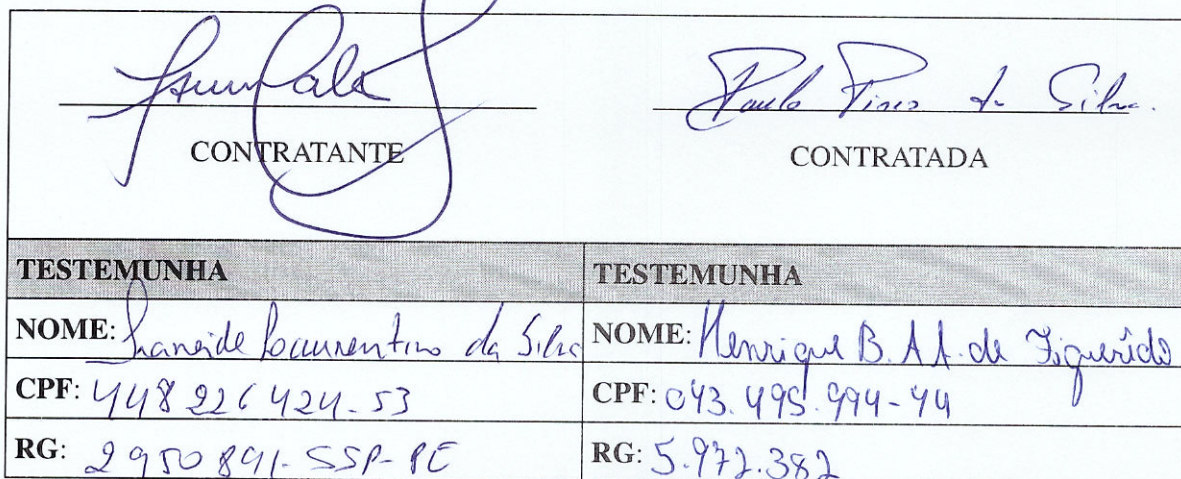 Paulo Pires da Silva.
CONTRATANTE CONTRATADA
TESTEMUNHA TESTEMUNHA
NOME: Laurentino da Silva NOME: Henrique B. A. A. de Figueirêdo
CPF: 448 226 424-53 CPF: 043.495.994-44
RG: 2950891-SSP-PE RG: 5.972.382